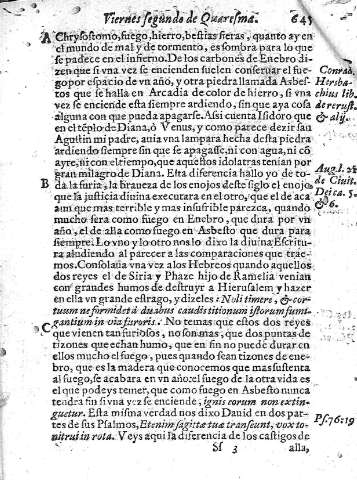 Viernes segundo de Quaresma. 645
A Chrysostomo, fuego, hierro, bestias fieras, quanto ay en
el mundo de mal y de tormento, es sombra para lo que
se padece en el infierno. De los carbones de Enebro di-
zen que si vna vez se encienden suelen conseruar el fue-
go por espacio de vn año, y otra piedra llamada Asbes-
tos que se halla en Arcadia de color de hierro, si vna
vez se enciende esta siempre ardiendo, sin que aya cosa
alguna con que pueda apagarse. Assi cuenta Isidoro que
en el tēplo de Diana, ò Venus, y como parece dezir san
Agustin mi padre, auia vna lampara hecha desta piedra
ardiendo siempre sin que se apagasse, ni con agua, ni cō
ayre, ni con el tiempo, que aquestos idolatras tenian por
gran milagro de Diana. Esta diferencia hallo yo de to-
B da la furia, y la braueza de los enojos deste siglo el enojo
que la justicia diuina executara en el otro, que el de aca
aun que mas terrible y mas insufrible parezca, quando
mucho sera como fuego en Enebro, que dura por vn
año, el de alla como fuego en Asbesto que dura para
siempre. Lo vno y lo otro nos lo dixo la diuina Escritu-
ra aludiendo al parecer a las comparaciones que trae-
mos. Consolaua vna vez a los Hebreos quando aquellos
dos reyes el de Siria y Phaze hijo de Ramelia venian
con grandes humos de destruyr a Hierusalem y hazer
en ella vn grande estrago, y dizeles: Noli timere, & cor-
tuum ne formidet à duabus caudis titionum istorum fumi-
C gantium in ira furoris. No temas que estos dos reyes
que vienen tan furiosos, no son mas, que dos puntas de
tizones que echan humo, que en fin no puede durar en
ellos mucho el fuego, pues quando sean tizones de ene-
bro, que es la madera que conocemos que mas sustenta
al fuego, se acabara en vn año: el fuego de la otra vida es
el que podeys temer, que como fuego en Asbesto nunca
tendra fin si vna vez se enciende, ignis eorum non extin-
guetur. Esta misma verdad nos dixo Dauid en dos par-
tes de sus Psalmos, Etenim sagittæ tuæ transeunt, vox to-
nitrui in rota. Veys aqui la diferencia de los castigos de
Sf 3 alla,
Conrad.
Hersba-
chius lib.
de re rust.
& alij.
Aug. l. 21
de Ciuit.
Dei ca. 5.
& 6.
Ps. 76. 19